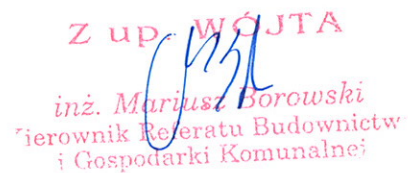 Z up. WÓJTA
inż. Mariusz Borowski
ierownik Referatu Budownictw
i Gospodarki Komunalnej